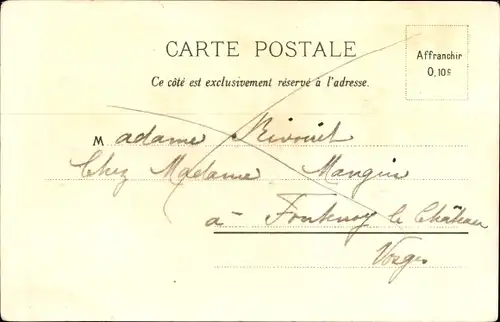 CARTE POSTALE
Affranchir
0,10 c
Ce côté est exclusivement réservé à l'adresse.
Madame
Chez Madame Mangin
à Fontenoy le Château
Vosges